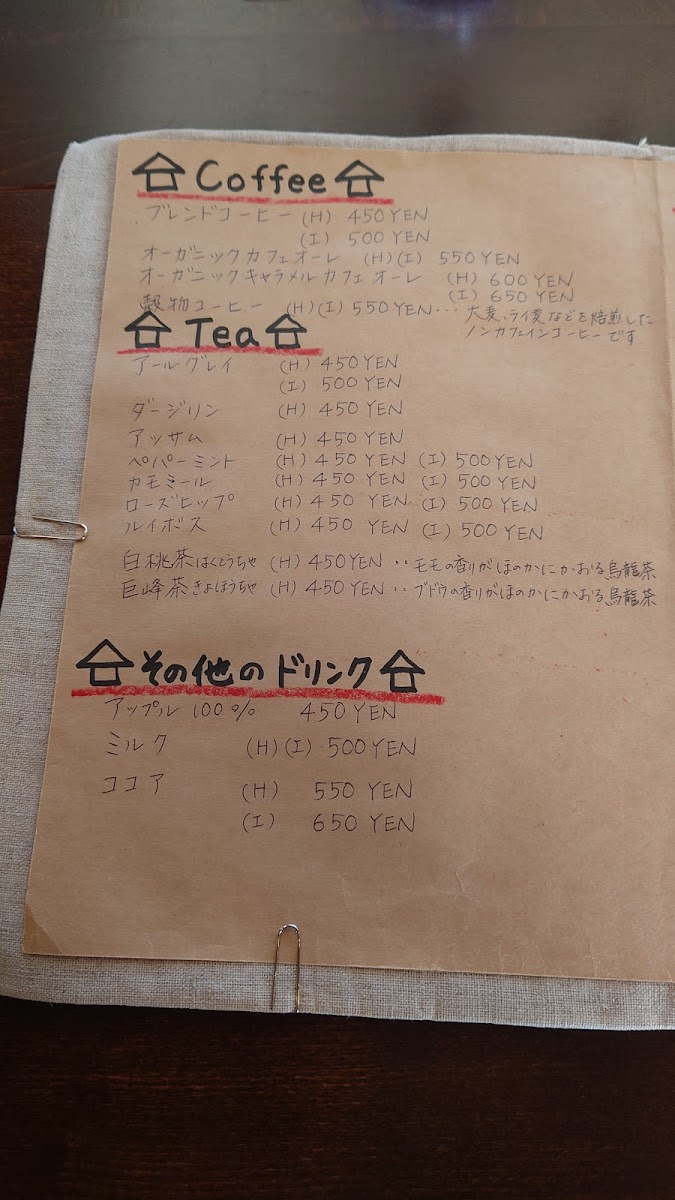 Coffee
ブレンドコーヒー (H) 450 YEN
(I) 500 YEN
オーガニックカフェオーレ (H)(I) 550 YEN
オーガニックキャラメルカフェオーレ (H) 600 YEN
(I) 650 YEN
穀物コーヒー (H)(I) 550 YEN… 大麦、ライ麦などを焙煎した
ノンカフェインコーヒーです
Tea
アールグレイ (H) 450 YEN
(I) 500 YEN
ダージリン (H) 450 YEN
アッサム (H) 450 YEN
ペパーミント (H) 450 YEN (I) 500 YEN
カモミール (H) 450 YEN (I) 500 YEN
ローズヒップ (H) 450 YEN (I) 500 YEN
ルイボス (H) 450 YEN (I) 500 YEN
白桃茶はくとうちゃ (H) 450 YEN ‥ モモの香りがほのかにかおる烏龍茶
巨峰茶きょほうちゃ (H) 450 YEN ‥ ブドウの香りがほのかにかおる烏龍茶
その他のドリンク
アップル 100% 450 YEN
ミルク (H)(I) 500 YEN
ココア (H) 550 YEN
(I) 650 YEN